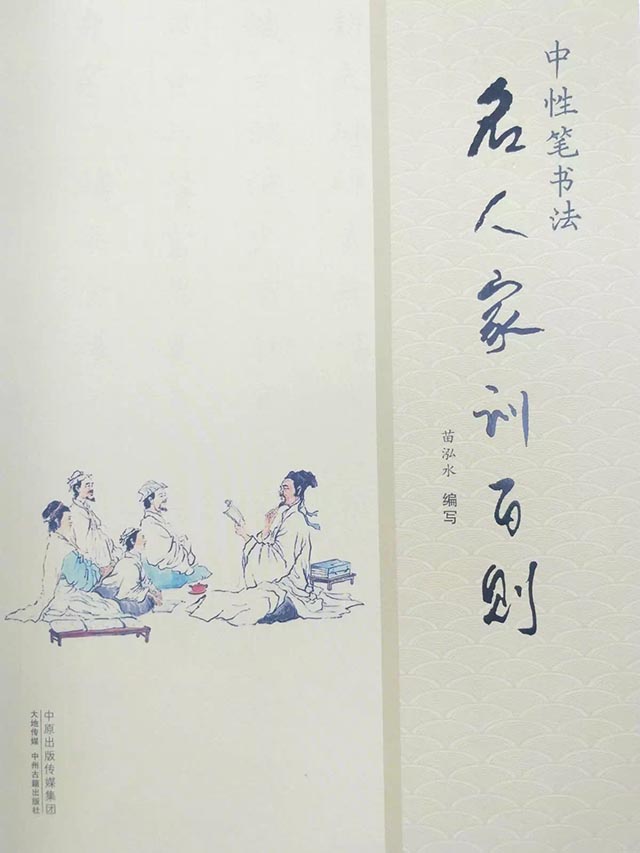 中性笔书法
名人家训百则
苗泓水 编写
中原出版传媒集团
大地传媒 中州古籍出版社